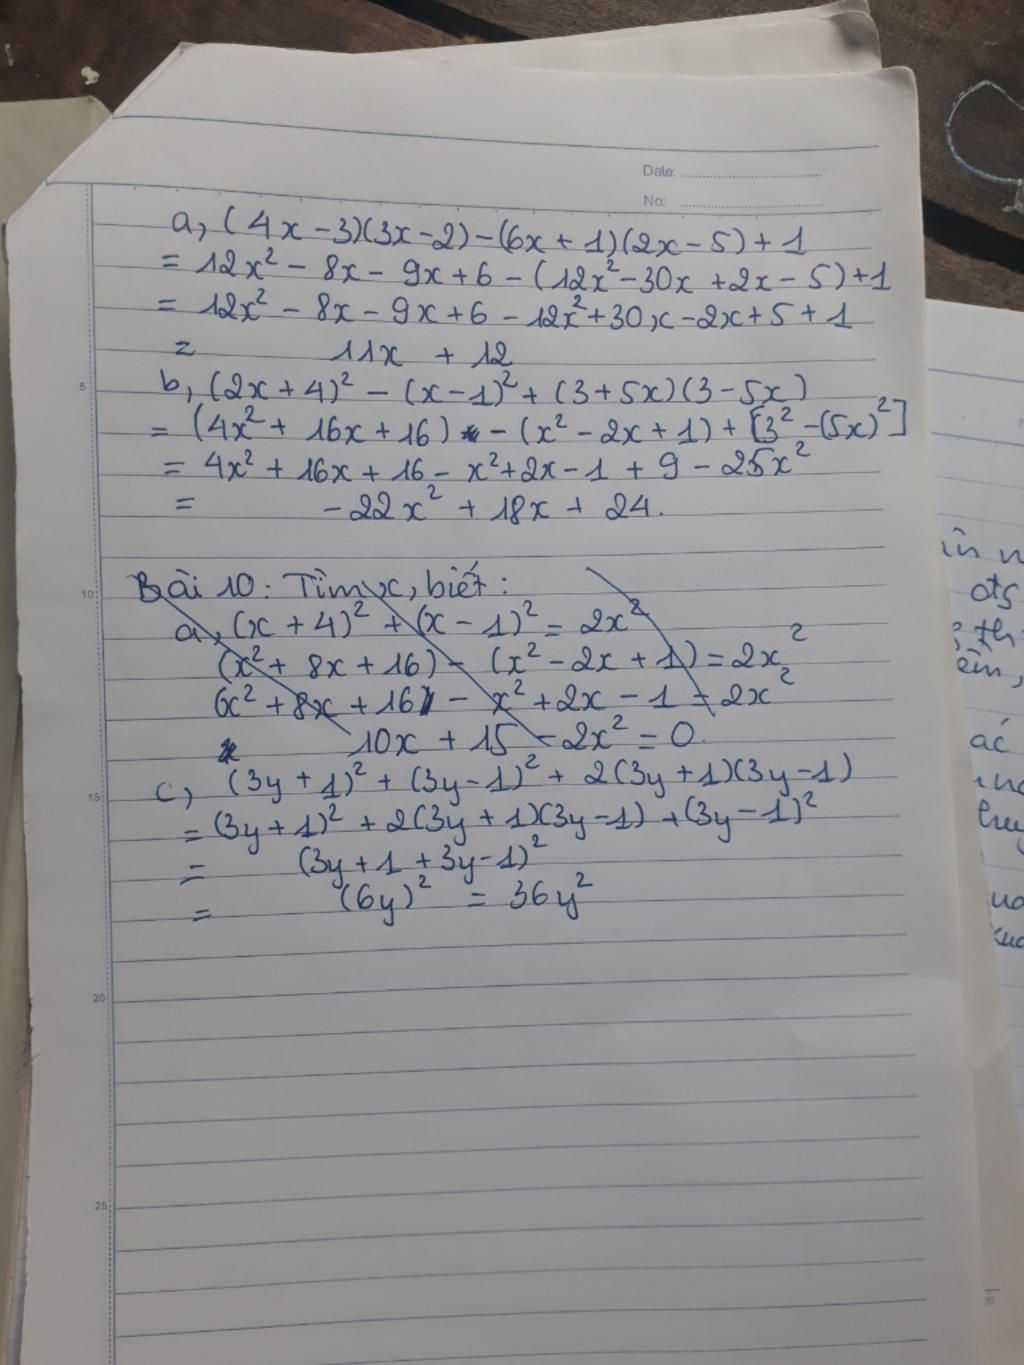 Date:
No:
a, (4x - 3)(3x - 2) - (6x + 1)(2x - 5) + 1
= 12x² - 8x - 9x + 6 - (12x² - 30x + 2x - 5) + 1
= 12x² - 8x - 9x + 6 - 12x² + 30x - 2x + 5 + 1
= 11x + 12
5
b, (2x + 4)² - (x - 1)² + (3 + 5x)(3 - 5x)
= (4x² + 16x + 16) - (x² - 2x + 1) + [3² - (5x)²]
= 4x² + 16x + 16 - x² + 2x - 1 + 9 - 25x²
= -22x² + 18x + 24.
10
Bài 10: Tìm x, biết:
a, (x + 4)² + (x - 1)² = 2x²
(x² + 8x + 16) - (x² - 2x + 1) = 2x²
x² + 8x + 16 - x² + 2x - 1 = 2x²
10x + 15 - 2x² = 0
15
c, (3y + 1)² + (3y - 1)² + 2(3y + 1)(3y - 1)
= (3y + 1)² + 2(3y + 1)(3y - 1) + (3y - 1)²
= (3y + 1 + 3y - 1)²
= (6y)² = 36y²
20
25